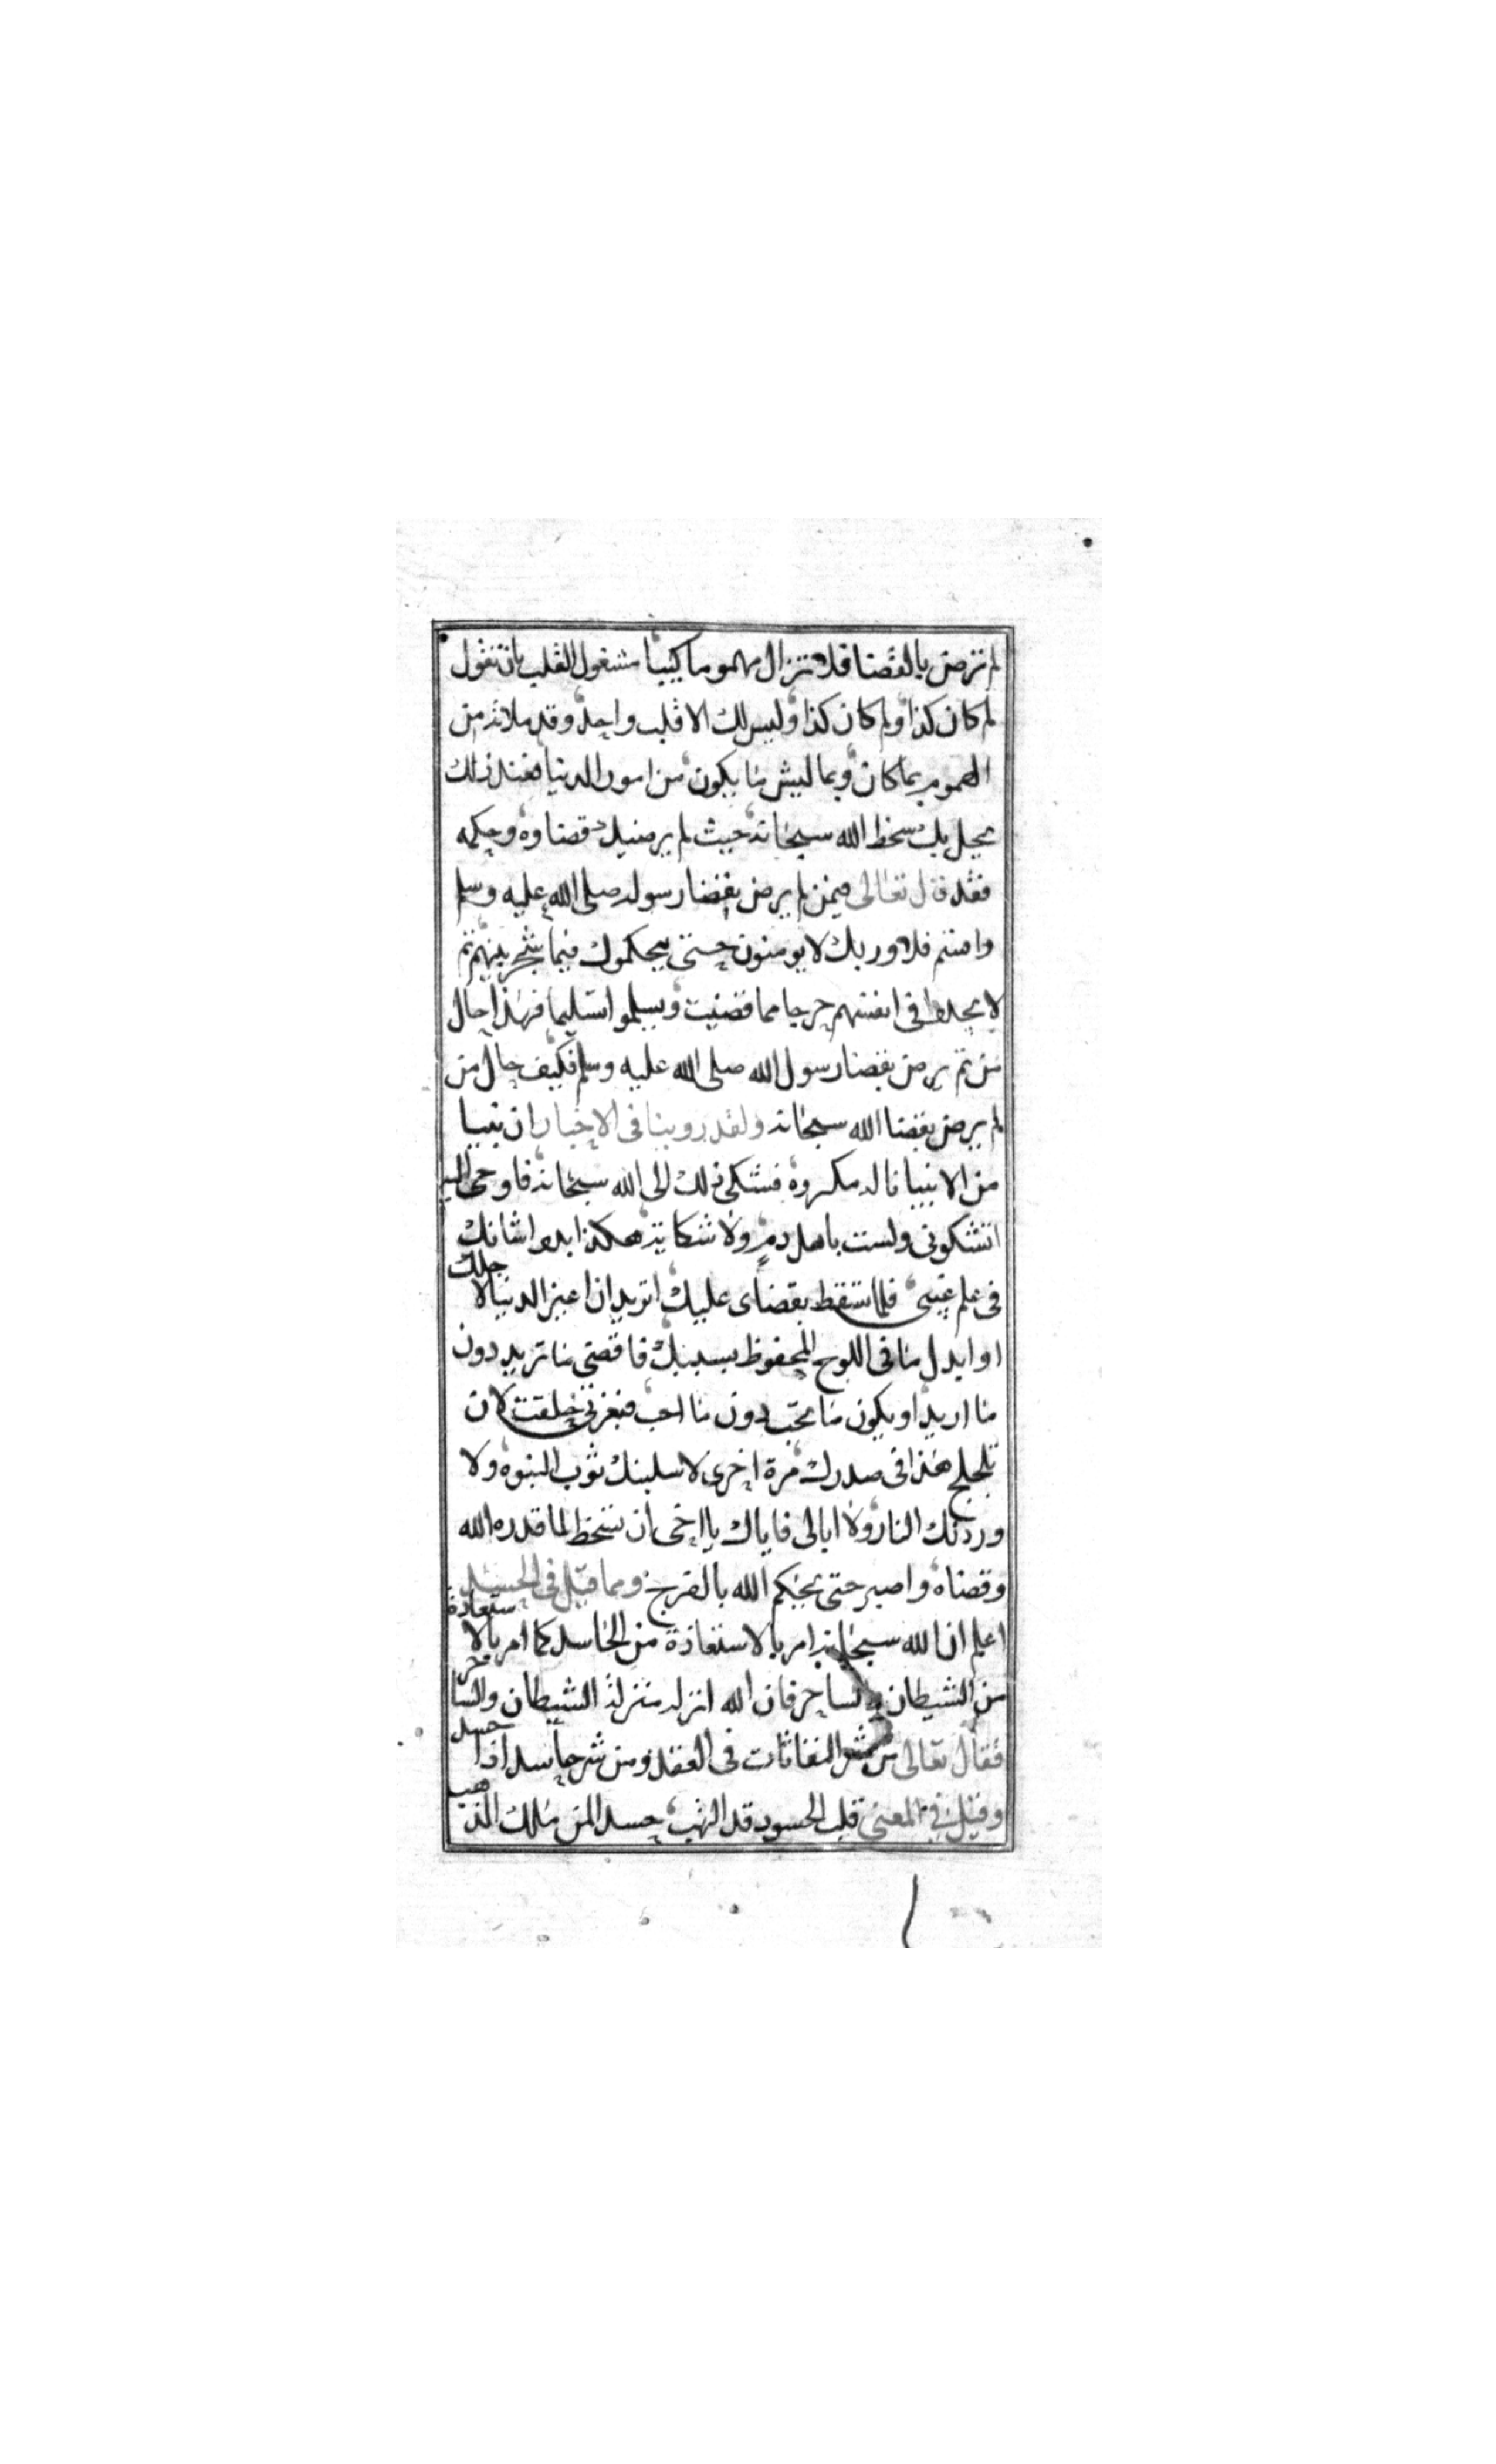 لم ترض بالقضا فلا تزال مهموما كيبا مشغول القلب بان تقول
لم كان كذا ولم كان كذا وليس لك الا قلب واحد وقد ملاته من
الهموم بما كان وبما ليش ما يكون من امور الدنيا فعند ذلك
يحل بك سخط الله سبحانه حيث لم يرضيك قضاوه وحكمه
فقد قال تعالى فيمن لم يرض بقضا رسوله صلى الله عليه وسلم
واقسم فلا وربك لا يومنون حتى يحكموك فيما شجر بينهم ثم
لا يجدوا في انفسهم حرجا مما قضيت ويسلموا تسليما فهذا حال
من لم يرض بقضا رسول الله صلى الله عليه وسلم فكيف حال من
لم يرض بقضا الله سبحانه ولقد روينا في الاخبار ان نبيا
من الانبيا ناله مكروه فشكى ذلك الى الله سبحانه فاوحى اليه
اتشكوني ولست باهل ذم ولا شكاية هكذا ابدوا شانك
في علم غيبي فلما تسقط بقضاى عليك اتريد ان اغير الدنيا لاجلك
او ابدل ما في اللوح المحفوظ بسببك فاقضي ما تريد دون
ما اريد او يكون ما تحب دون ما احب فبعزتي خلقت لان
تلجلج هذا في صدرك مرة اخرى لاسلبنك ثوب النبوه ولا
وردنك النار ولا ابالي فاياك يا اخي ان تسخط لما قدره الله
وقضاه واصبر حتى يحكم الله بالفرج ومما قيل في الحسد
اعلم ان الله سبحانه امر بالاستعاذة من الحاسد كما امر بالاستعاذة
من الشيطان والساحر فان الله انزله منزلة الشيطان والساحر
فقال تعالى من شر النفاثات في العقد ومن شر حاسد اذا حسد
وقيل في المعنى قلب الحسود قد التهب حسد المن ملك الذهب